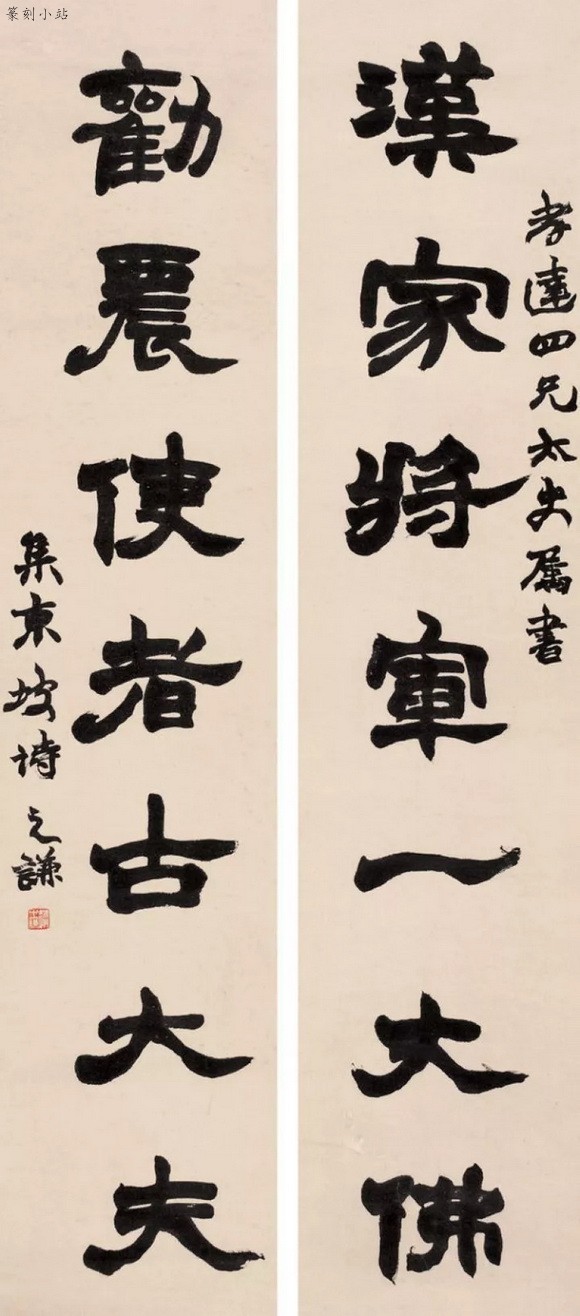 孝達四兄太史属書
漢家將軍一大佛
勸農使者古大夫
集東坡詩 之謙
篆刻小站